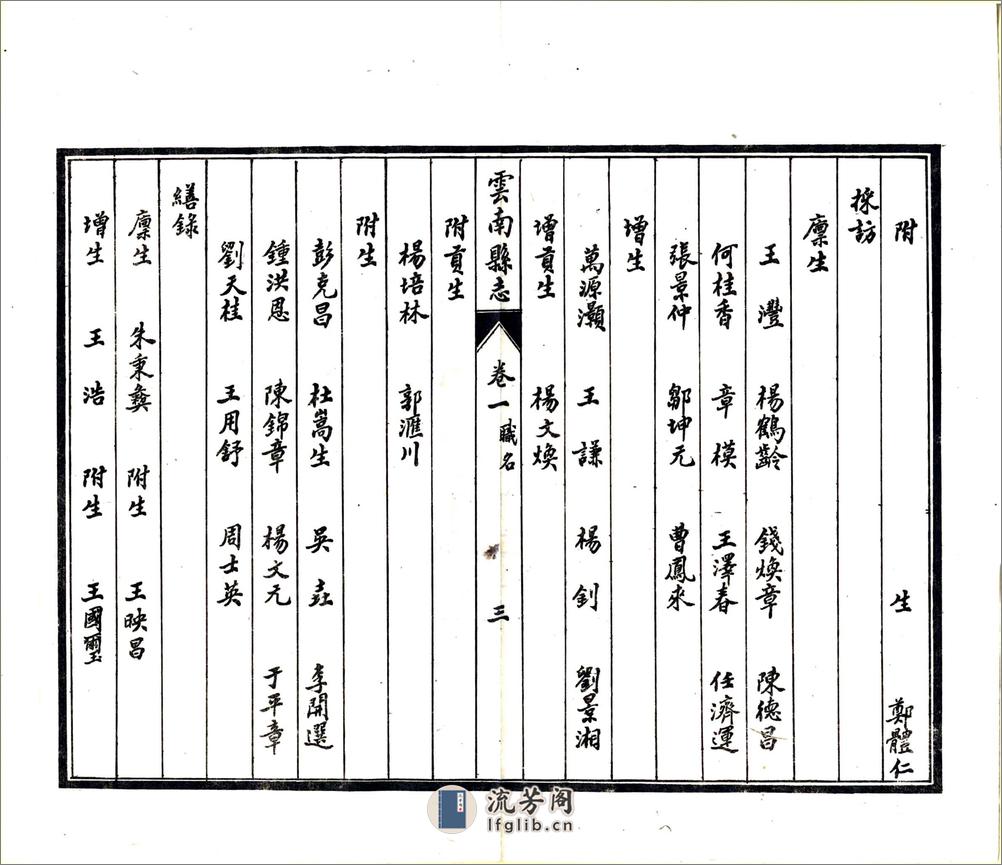 附 生 鄭體仁
採訪
廩生
王 灃 楊鶴齡 錢煥章 陳德昌
何桂香 章 模 王澤春 任濟運
張景仲 鄒坤元 曹鳳來
增生
萬源灝 王 謙 楊 釗 劉景湘
增貢生 楊文煥
雲南縣志 卷一 職名 三
附貢生
楊培林 郭滙川
附生
彭克昌 杜嵩生 吳 垚 李開選
鍾洪恩 陳錦章 楊文元 于平章
劉天桂 王用舒 周士英
繕錄
廩生 朱秉彝 附生 王映昌
增生 王 浩 附生 王國璽
流芳阁
lfglib.cn